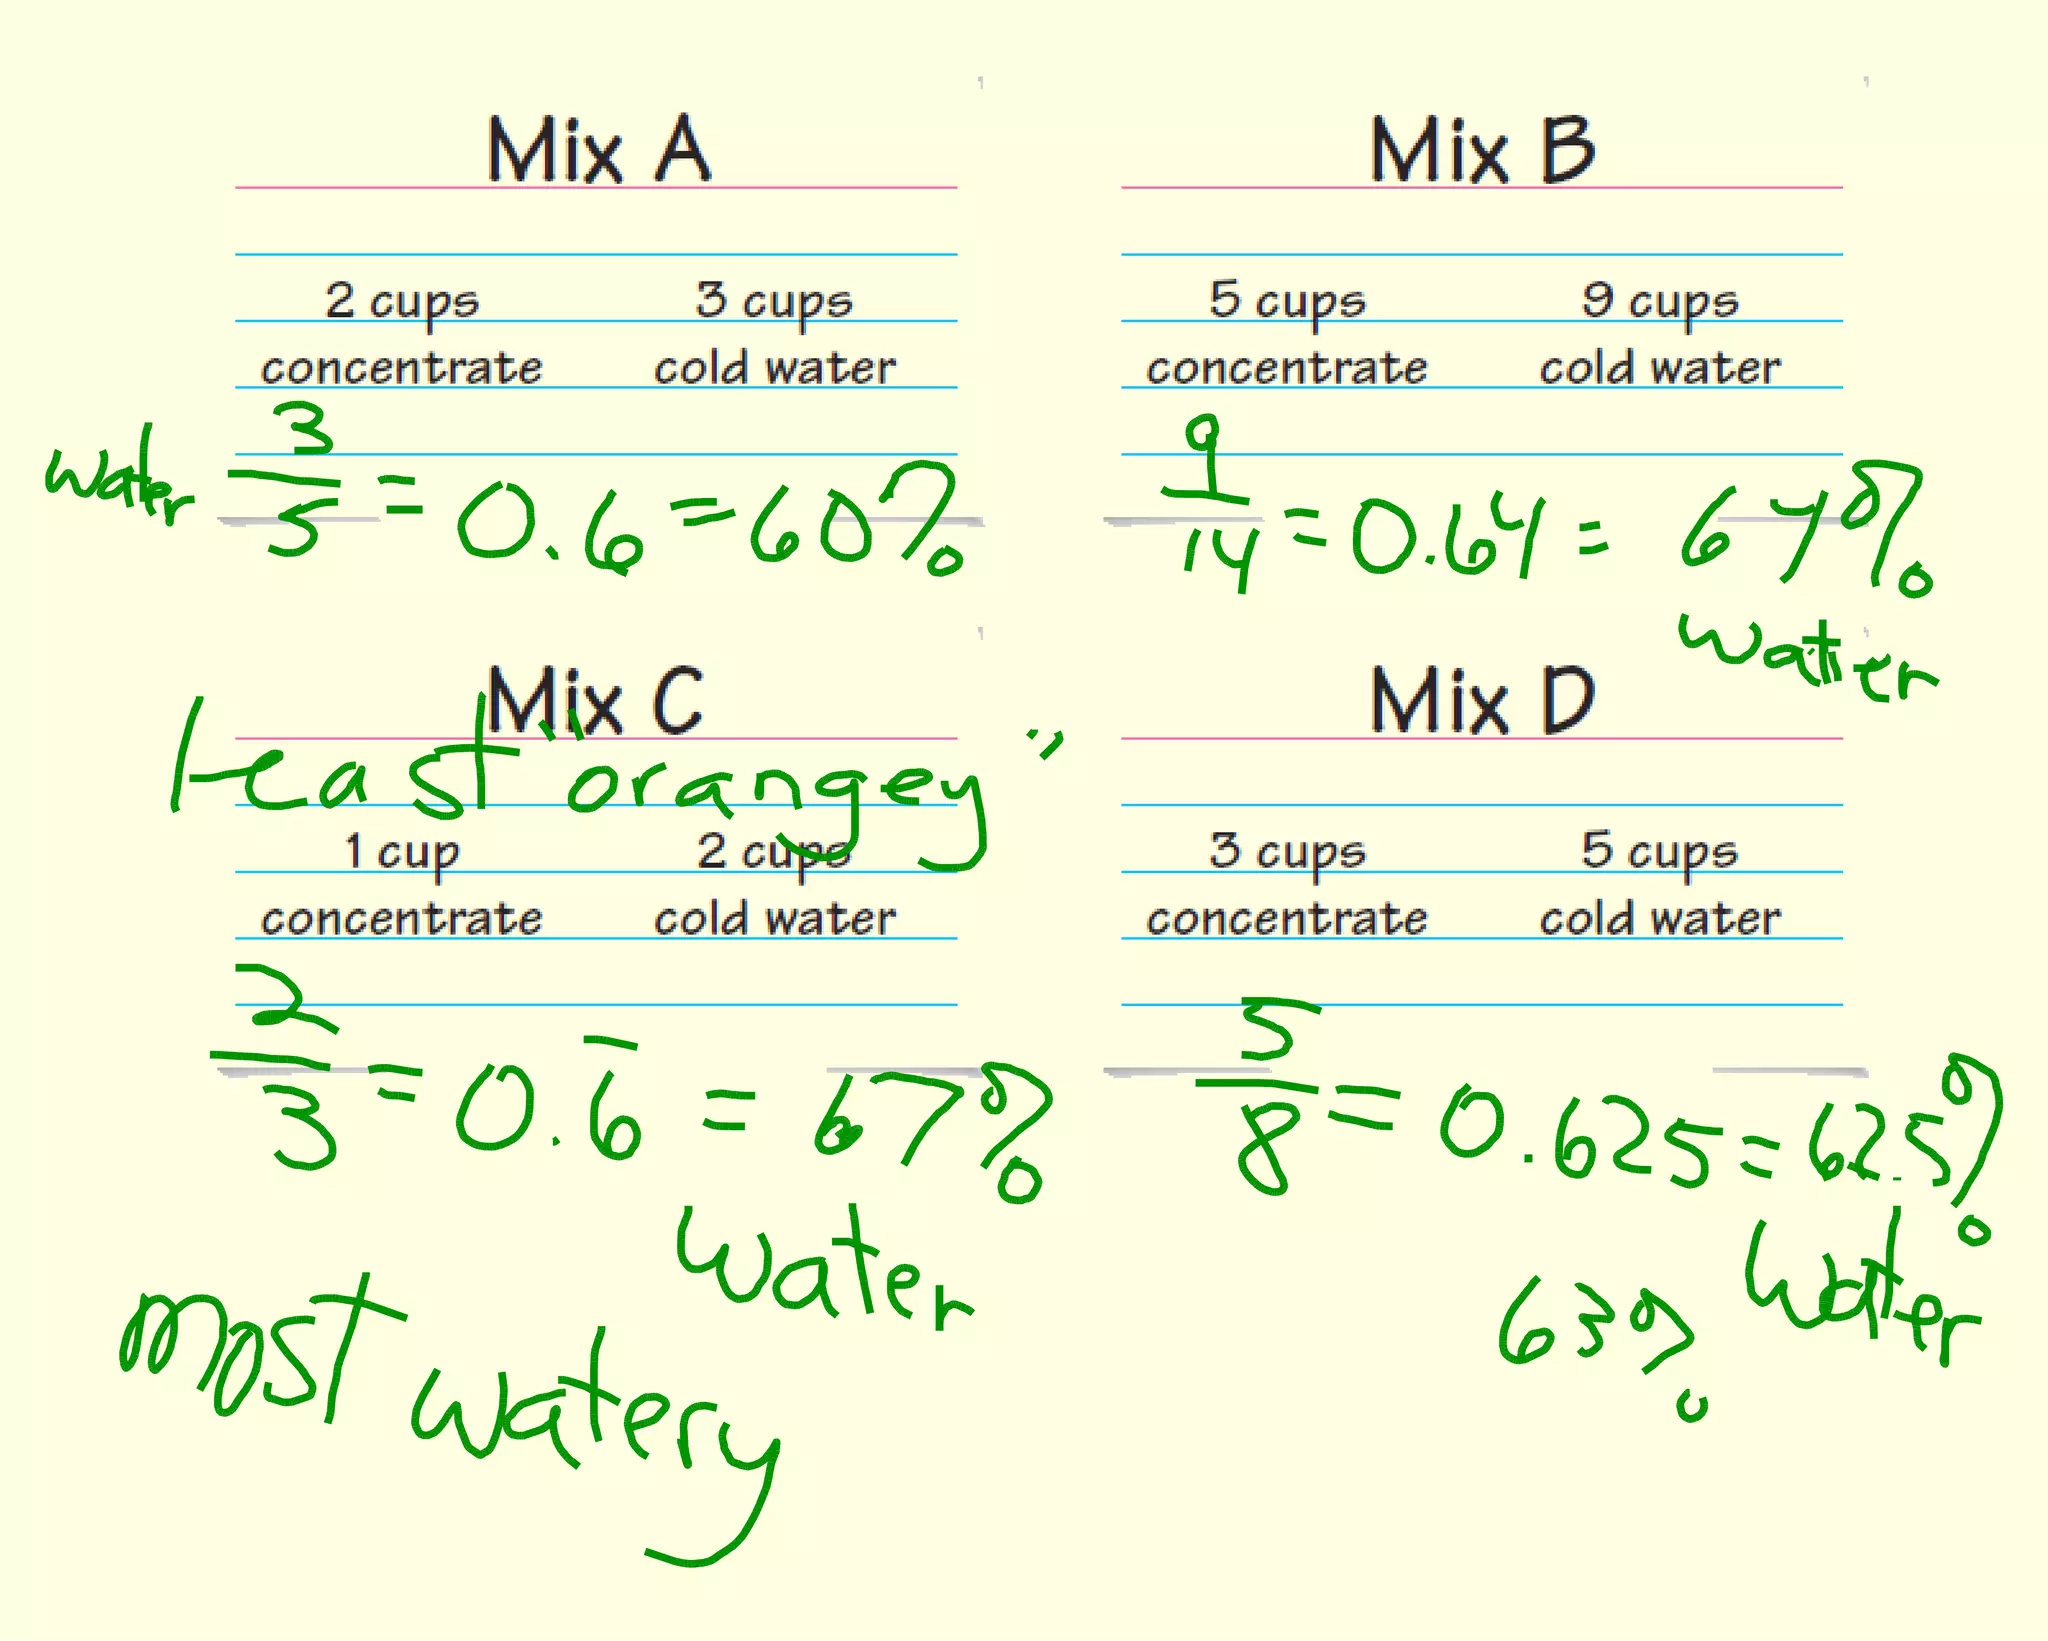 Mix A
2 cups 3 cups
concentrate cold water
water 3/5 = 0.6 = 60%
Mix B
5 cups 9 cups
concentrate cold water
9/14 = 0.64 = 64%
water
Mix C
Least "orangey"
1 cup 2 cups
concentrate cold water
2/3 = 0.6̅ = 67%
water
most watery
Mix D
3 cups 5 cups
concentrate cold water
5/8 = 0.625 = 62.5%
water
63%